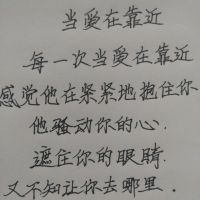 当愛在靠近
每一次当愛在靠近
感觉他在紧紧地抱住你
他骚动你的心.
遮住你的眼睛.
又不知让你去哪里.